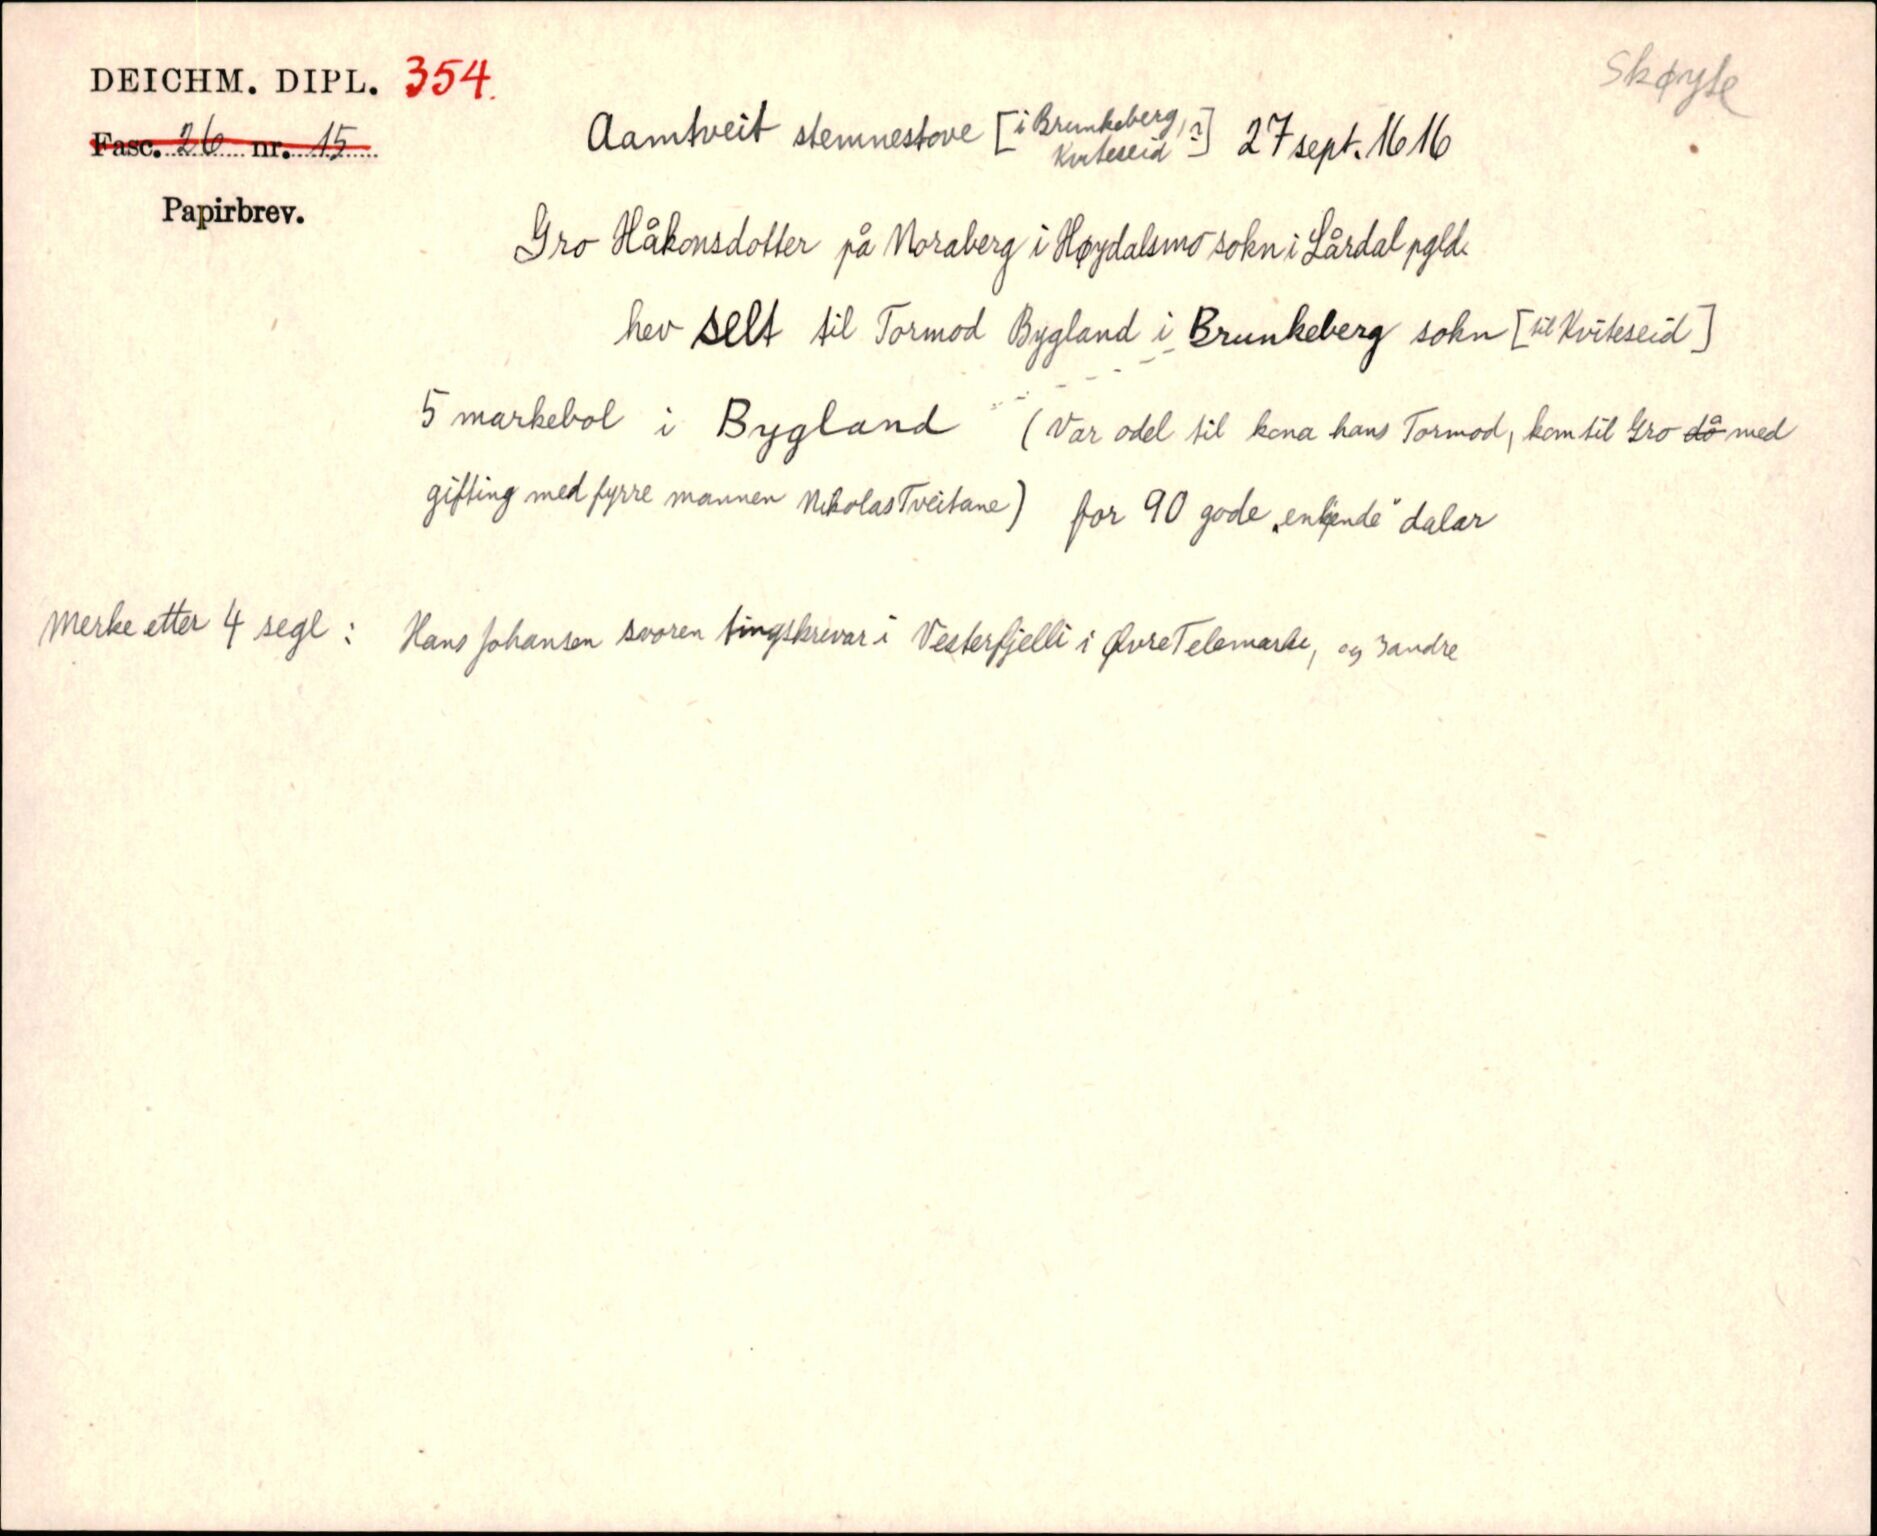 DEICHM. DIPL. 354.
Skøyte
Fasc. 26 nr. 15
Aamtveit stemnestove [i Brunkeberg, Kviteseid ?] 27 sept. 1616
Papirbrev.
Gro Håkonsdotter på Noraberg i Høydalsmo sokn i Lårdal pgld.
hev selt til Tormod Bygland i Brunkeberg sokn [til Kviteseid]
5 markebol i Bygland (Var odel til kona hans Tormod, kom til Gro då med
gifting med fyrre mannen Nikolas Tveitane) for 90 gode „enkende" dalar
Merke etter 4 segl: Hans Johansen svoren tingskrivar i Vesterfjelli i Øvre Telemark, og 3 andre